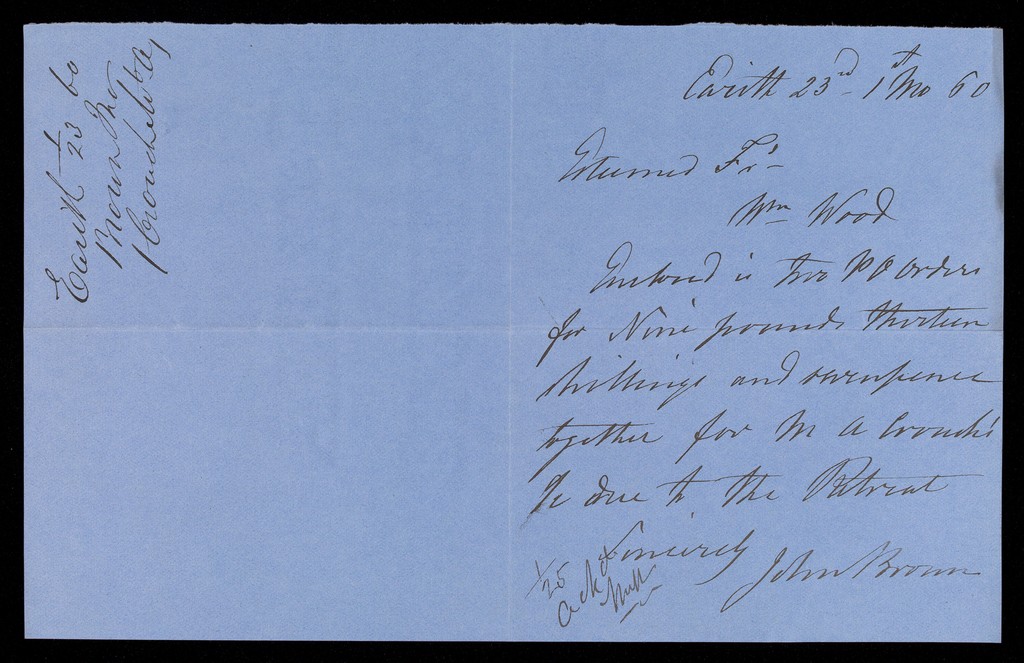 Earith 23rd 1st Mo 60
Esteemed Frd
Wm Wood
Enclosed is two P O Orders
for Nine pounds thirteen
shillings and sevenpence
together for M A Crouch's
a/c due to the Retreat
Sincerely
John Brown
1/25
ack
Earith 1/23 60
Brown Jno